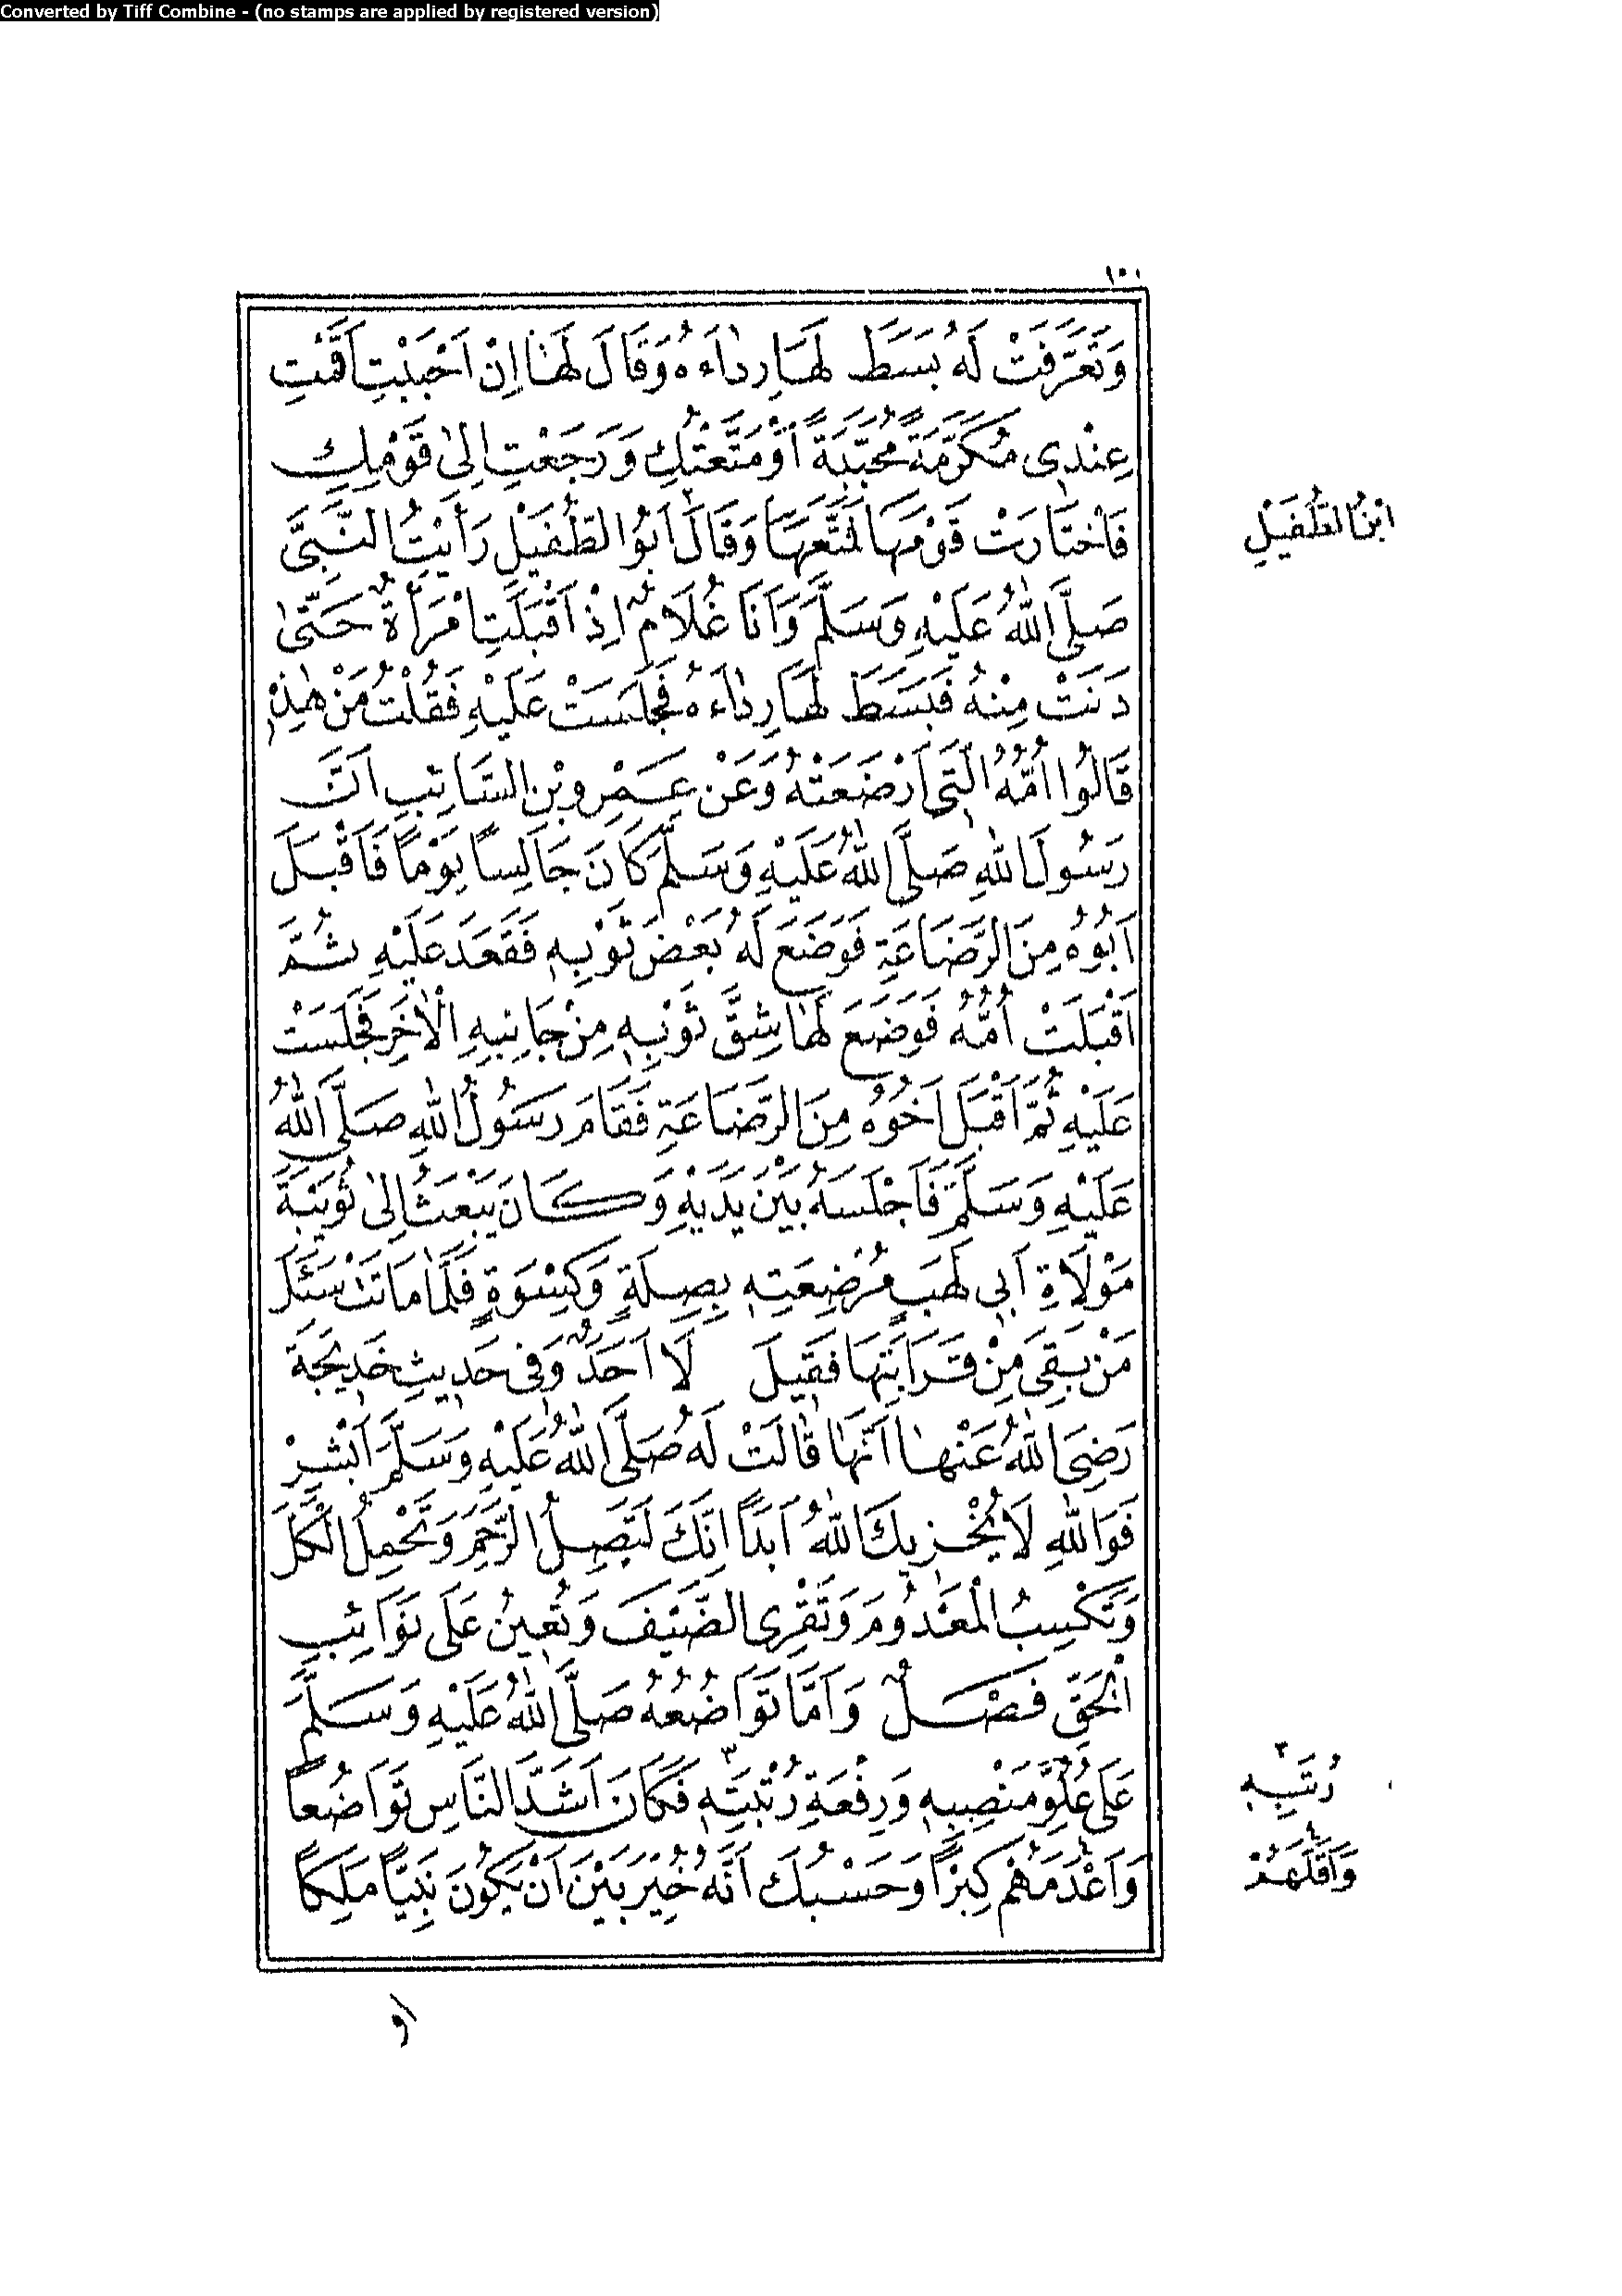 Converted by Tiff Combine - (no stamps are applied by registered version)
وَتَعَرَّفَتْ لَهُ بَسَطَ لَهَا رِدَاءَهُ وَقَالَ لَهَا اِنْ اَحْبَبْتِ اَقَمْتِ
عِنْدِى مُكَرَّمَةً مُحَبَّبَةً اَوْ مَتَّعْتُكِ وَرَجَعْتِ اِلىٰ قَوْمِكِ
فَاخْتَارَتْ قَوْمَهَا فَمَتَّعَهَا وَقَالَ اَبُو الطُّفَيْلِ رَأَيْتُ النَّبِىَّ
ابْنُ الطُّفَيْلِ
صَلَّى اللهُ عَلَيْهِ وَسَلَّمَ وَاَنَا غُلَامٌ اِذْ اَقْبَلَتِ امْرَأَةٌ حَتّىٰ
دَنَتْ مِنْهُ فَبَسَطَ لَهَا رِدَاءَهُ فَجَلَسَتْ عَلَيْهِ فَقُلْتُ مَنْ هٰذِهِ
قَالُوا اُمُّهُ الَّتِى اَرْضَعَتْهُ وَعَنْ عَمْرِو بْنِ السَّائِبِ اَنَّ
رَسُولَ اللهِ صَلَّى اللهُ عَلَيْهِ وَسَلَّمَ كَانَ جَالِسًا يَوْمًا فَاَقْبَلَ
اَبُوهُ مِنَ الرَّضَاعَةِ فَوَضَعَ لَهُ بَعْضَ ثَوْبِهِ فَقَعَدَ عَلَيْهِ ثُمَّ
اَقْبَلَتْ اُمُّهُ فَوَضَعَ لَهَا شِقَّ ثَوْبِهِ مِنْ جَانِبِهِ الْاٰخَرِ فَجَلَسَتْ
عَلَيْهِ ثُمَّ اَقْبَلَ اَخُوهُ مِنَ الرَّضَاعَةِ فَقَامَ رَسُولُ اللهِ صَلَّى اللهُ
عَلَيْهِ وَسَلَّمَ فَاَجْلَسَهُ بَيْنَ يَدَيْهِ وَكَانَ يَبْعَثُ اِلىٰ ثُوَيْبَةَ
مَوْلَاةِ اَبِى لَهَبٍ مُرْضِعَتِهِ بِصِلَةٍ وَكِسْوَةٍ فَلَمَّا مَاتَتْ سَئَلَ
مَنْ بَقِىَ مِنْ قَرَابَتِهَا فَقِيلَ لَا اَحَدٌ وَفِى حَدِيثِ خَدِيجَةَ
رَضِىَ اللهُ عَنْهَا اَنَّهَا قَالَتْ لَهُ صَلَّى اللهُ عَلَيْهِ وَسَلَّمَ اَبْشِرْ
فَوَاللهِ لَا يُخْزِيكَ اللهُ اَبَدًا اِنَّكَ لَتَصِلُ الرَّحِمَ وَتَحْمِلُ الْكَلَّ
وَتَكْسِبُ الْمَعْدُومَ وَتَقْرِى الضَّيْفَ وَتُعِينُ عَلَى نَوَائِبِ
الْحَقِّ فَصْلٌ وَاَمَّا تَوَاضُعُهُ صَلَّى اللهُ عَلَيْهِ وَسَلَّمَ
عَلَى عُلُوِّ مَنْصِبِهِ وَرِفْعَةِ رُتْبَتِهِ ٣ فَكَانَ اَشَدَّ النَّاسِ تَوَاضُعًا
٣ رُتَبِهِ
وَاَعْدَمَهُمْ ٤ كِبْرًا وَحَسْبُكَ اَنَّهُ خُيِّرَ بَيْنَ اَنْ يَكُونَ نَبِيًّا مَلِكًا
٤ وَاَقَلَّهُمْ
اَوْ